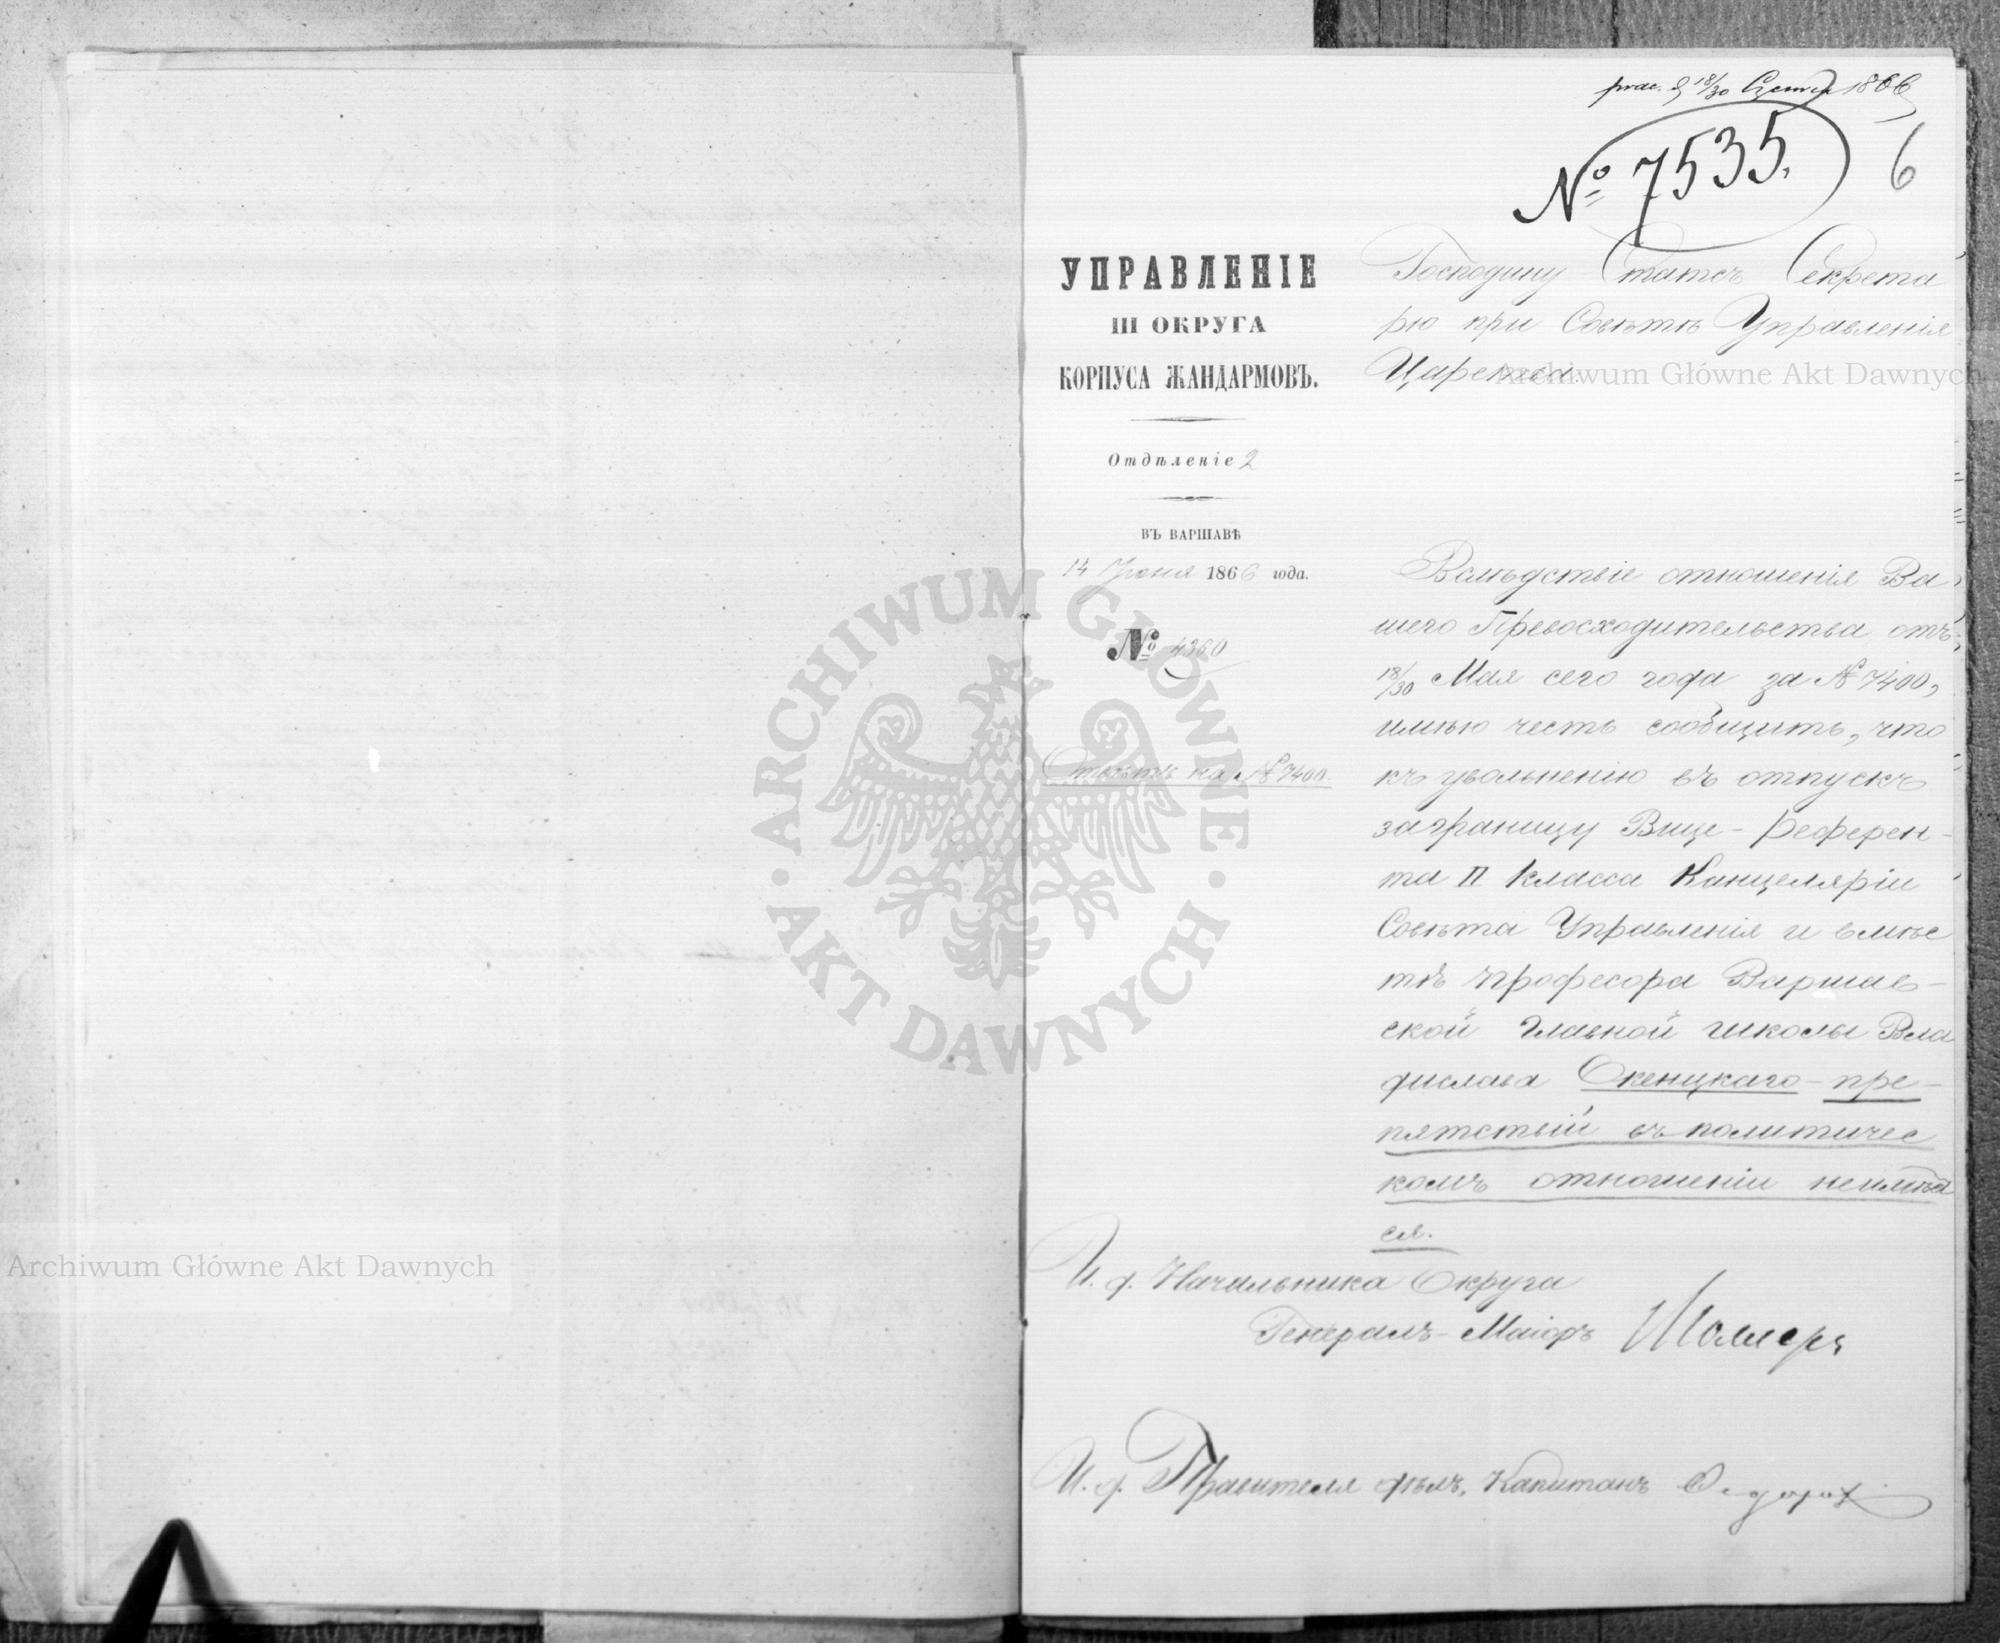 18/30 1866
№ 7535.
6
УПРАВЛЕНІЕ
III ОКРУГА
КОРПУСА ЖАНДАРМОВЪ.
Отдѣленіе 2
ВЪ ВАРШАВѢ
14 Іюня 1866 года.
№ 4360
Отвѣтъ на № 7400.
Господину Статсъ Секрета
рю при Совѣтѣ Управленія
Царства.
Вслѣдствіе отношенія Ва
шего Превосходительства отъ
18/30 Мая сего года за № 7400,
имѣю честь сообщить, что
къ увольненію въ отпускъ
заграницу Вице-Референ-
та II класса Канцеляріи
Совѣта Управленія и вмѣс
тѣ профессора Варшав-
ской главной школы Вла
дислава Окенцкаго - пре-
пятствій въ политичес
комъ отношеніи неимѣет
ся.
И. д. Начальника Округа
Генералъ-Маіоръ
И. д. Правителя дѣлъ, Капитанъ
Archiwum Główne Akt Dawnych
Archiwum Główne Akt Dawnych
ARCHIWUM GŁÓWNE AKT DAWNYCH